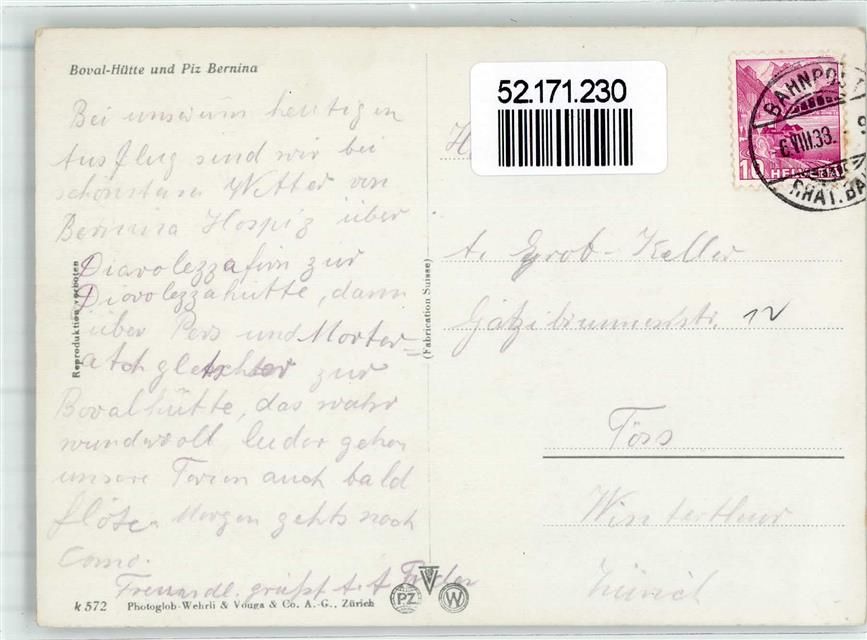 Boval-Hütte und Piz Bernina
Bei unserem heutigen
Ausflug sind wir bei
schönstem Wetter von
Bernina Hospiz über
Diavolezzafirn zur
Diavolezzahütte, dann
über Pers und Morter=
atschgletscher zur
Bovalhütte, das wahr
wundervoll leider gehen
unsere Ferien auch bald
flöten Morgen gehts nach
Como.
Freundl. grüßt
Reproduktion verboten
(Fabrication Suisse)
k 572 Photoglob-Wehrli & Vouga & Co. A.-G., Zürich
PZ V W
52.171.230
BAHNPOST
6.VIII.38.
RHÄT. BA
10 HELVETIA
A. Grob-Keller
12
Töss
Winterthur
Zürich